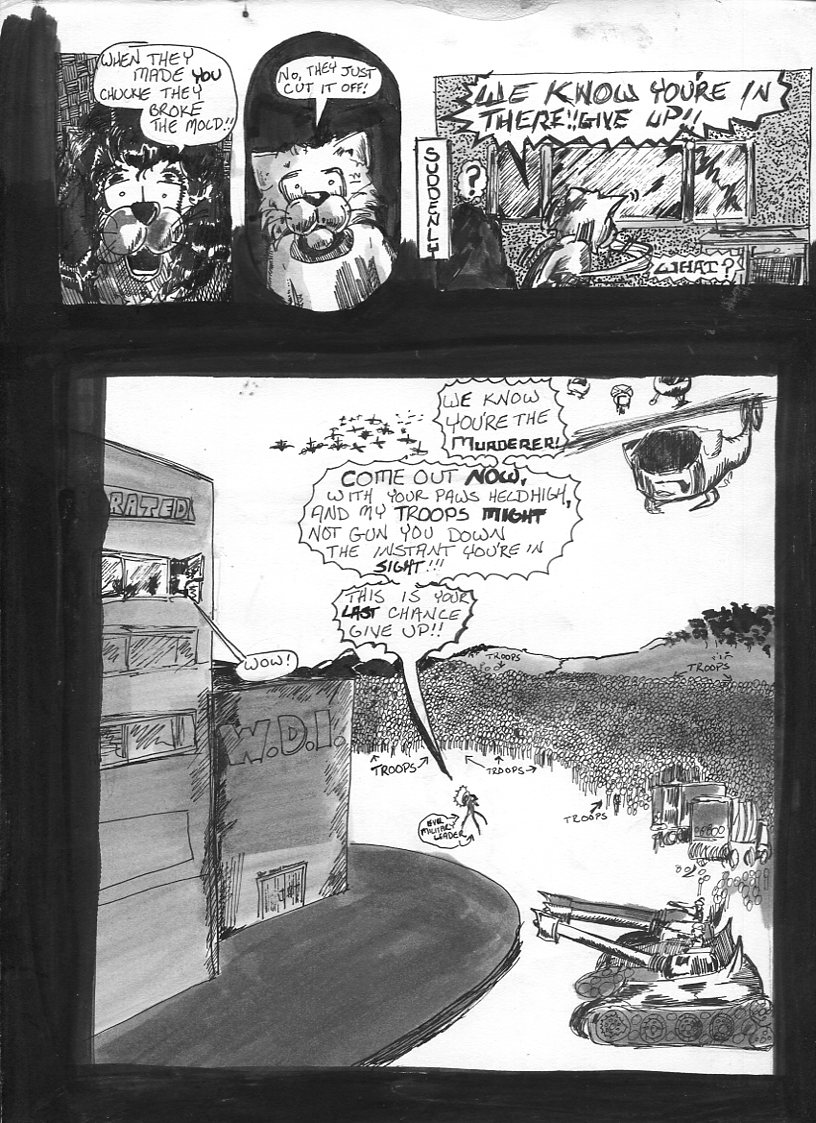 WHEN THEY
MADE YOU
CHUCKE THEY
BROKE
THE MOLD!!
NO, THEY JUST
CUT IT OFF!
SUDDENLY
WE KNOW YOU'RE IN
THERE!! GIVE UP!!
?
WHAT?
WE KNOW
YOU'RE THE
MURDERER!
COME OUT NOW,
WITH YOUR PAWS HELD HIGH,
AND MY TROOPS MIGHT
NOT GUN YOU DOWN
THE INSTANT YOU'RE IN
SIGHT!!!
THIS IS YOUR
LAST CHANCE
GIVE UP!!
RATED
WOW!
W.D.I.
TROOPS
TROOPS
TROOPS
TROOPS
TROOPS
EVIL
MILITARY
LEADER